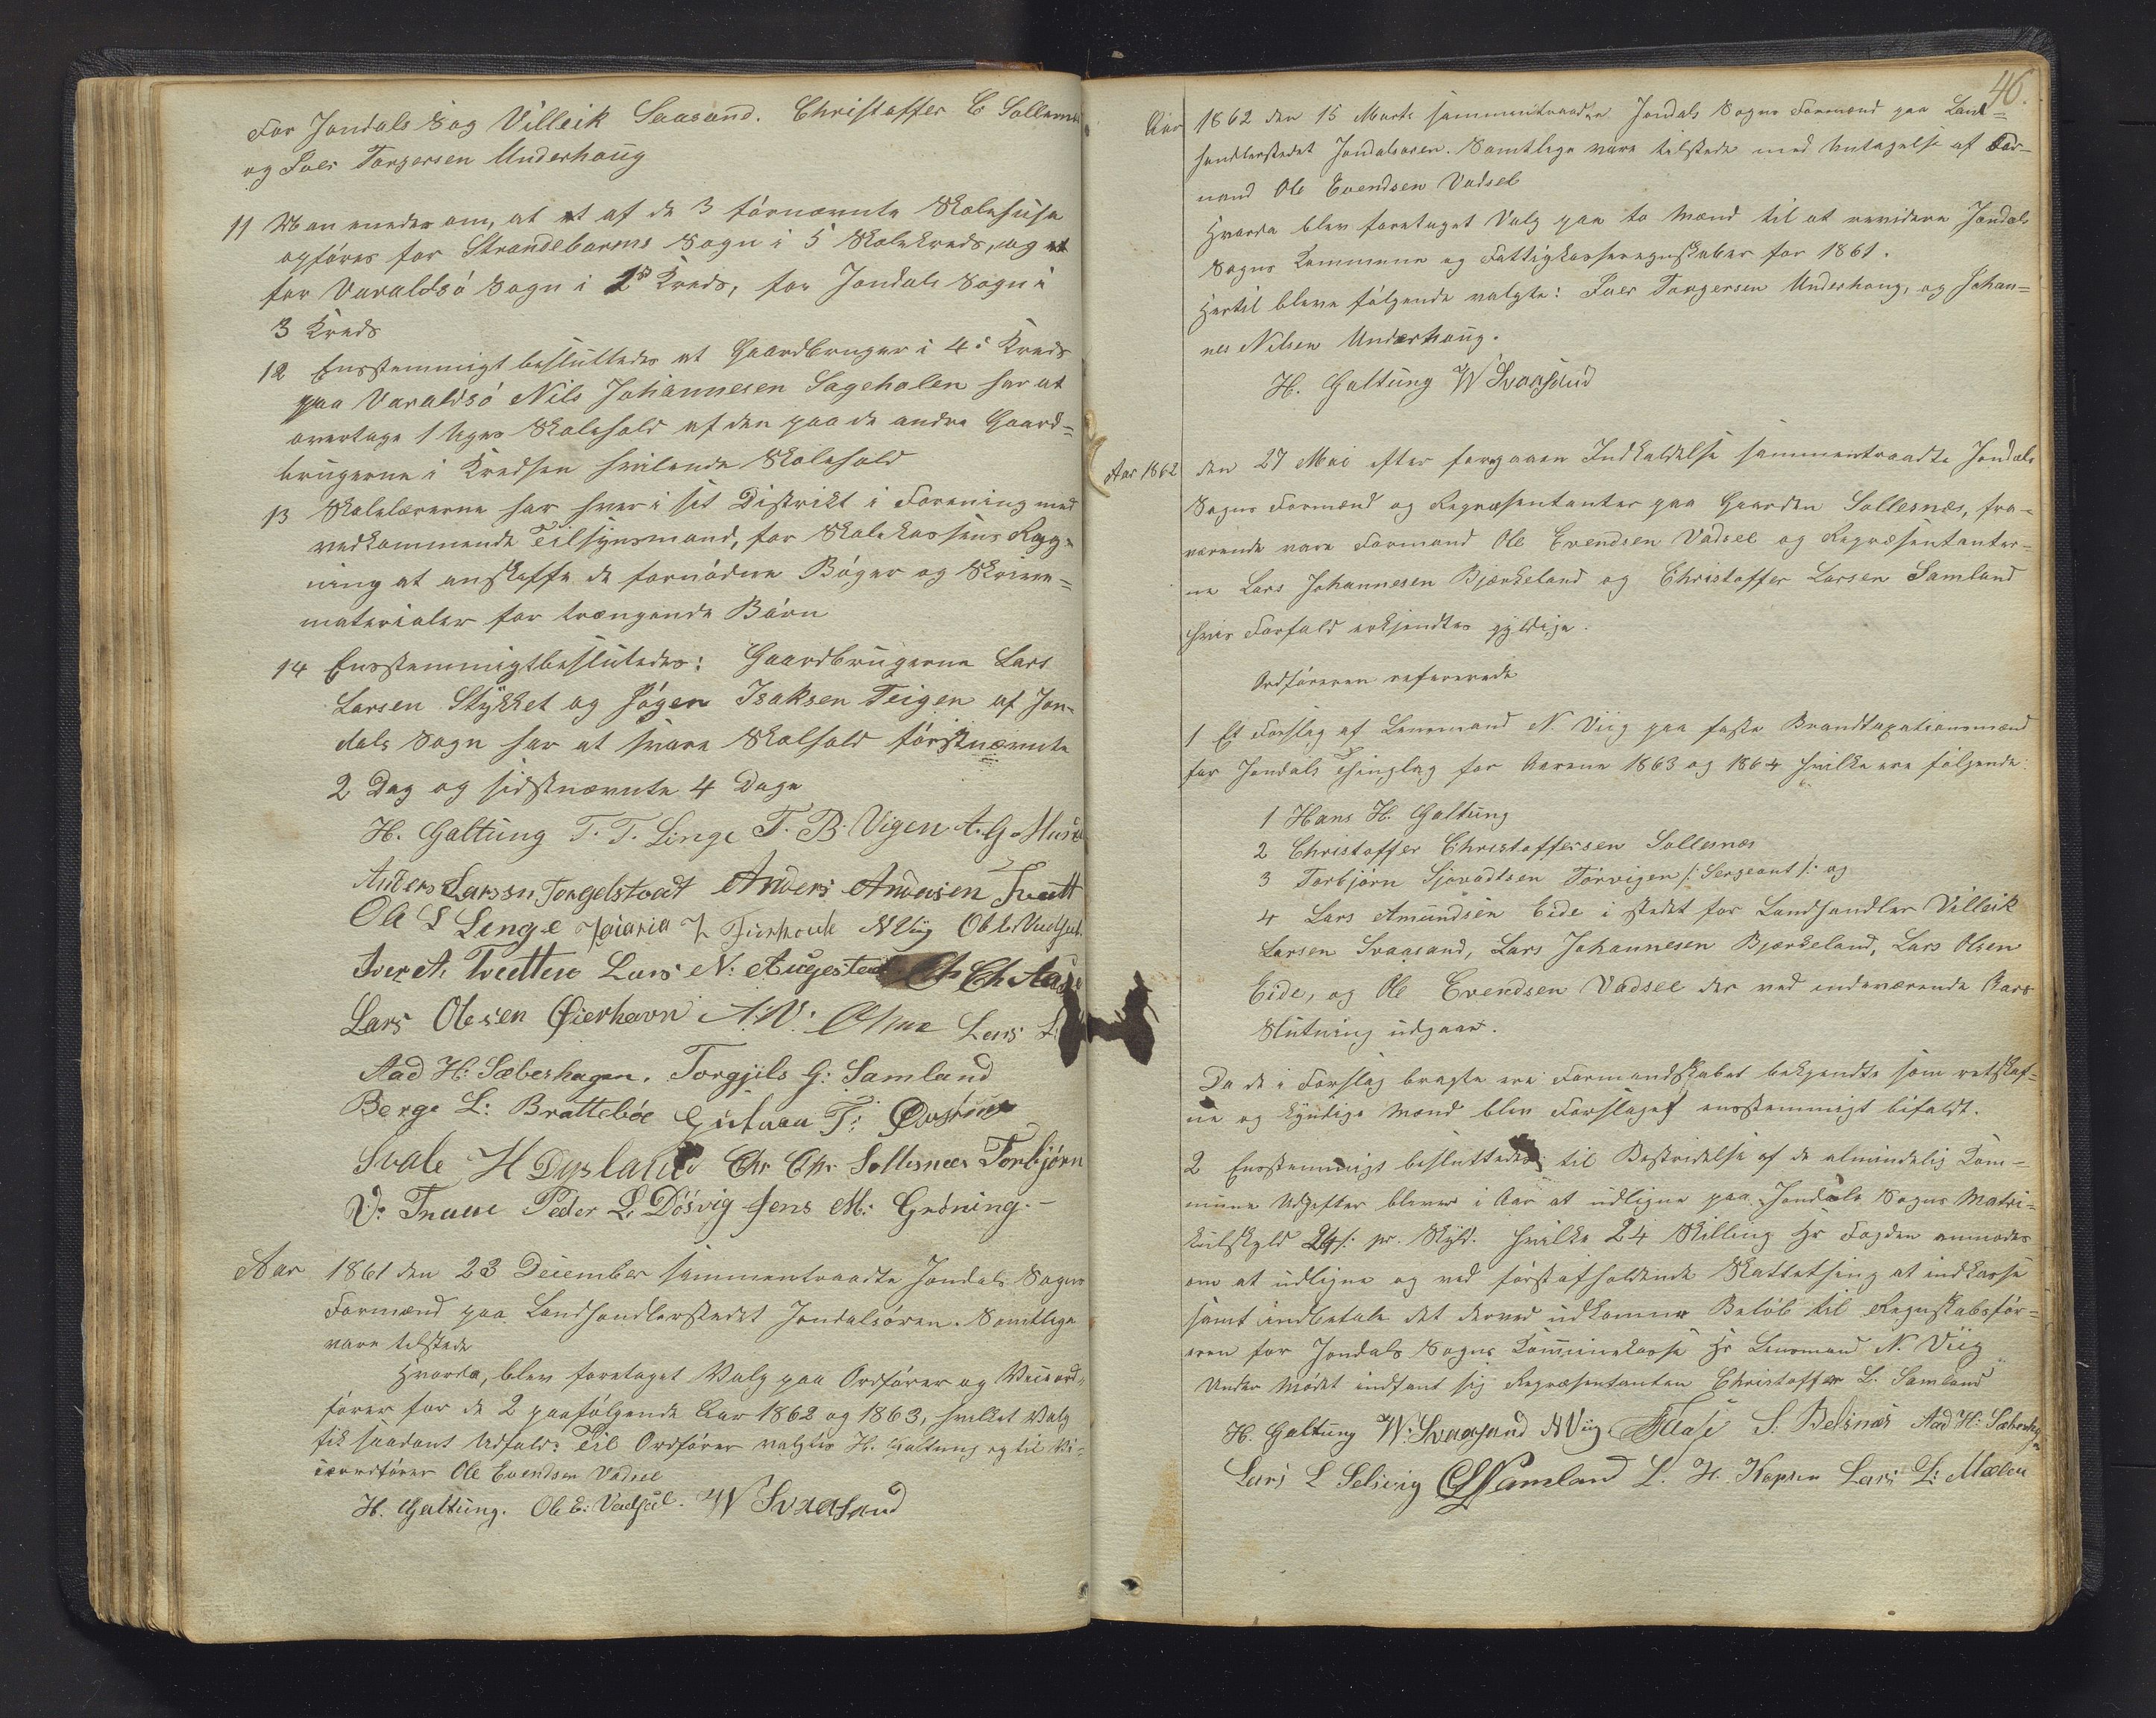 For Jondals Sog Villeik Saasand. Christoffer C Sollesnæs
og Iver Torgersen Underhaug
11 Man enedes om, at et af de 3 førnævnte Skolehuse
opføres for Strandebarms Sogn i 5 Skolekreds, og et
for Varaldsø Sogn i 1st Kreds, for Jondals Sogn i
3 Kreds
12 Eenstemmigt besluttedes at Gaardbruger i 4de Kreds
paa Varaldsø Nils Johannesen Sageholen har at
overtage 1 Uges Skolehold af den paa de andre Gaard=
brugerne i Kredsen hvilende Skolehold
13 Skolelærerne har hver i sit Distrikt i Forening med
vedkommende Tilsynsmand, for Skolekassens Reg=
ning at anskaffe de fornødne Bøger og Skrive=
materialer for trængende Børn
14 Eenstemmigt beslutedes: Gaardbrugerne Lars
Larsen Stykket og Hógen Isaksen Teigen af Jon=
dals Sogn har at svare Skolhold førstnævnte
2 Dag og sidstnævnte 4 Dage
H. Galtung T. T. Linge T. B. Vigen A. G. Mus
Anders Larssn Torgelstvedt Anders Andersen Tvedt
Ole L Linge Zakaria Z NViig Ole E. Vadsel
Iver A. Tveitten Lars N: Augestad Ch Ch Aase
Lars Olesen Øierhavn A. W: Lars L.
Aad H: Sæberhagen. Torgjils G: Samland
Berge L: Brattebøe Gutorm T: Øvstius
Svale H Dysland Chr Chr Sollesnæs Torbjørn
V: Tnaue Peder L. Døsvig Jens M: Grøning.
Aar 1861 den 23 December sammentraadte Jondals Sogns
Formænd paa Landhandlerstedet Jondalsøren. Samtlige
vare tilstede
Hvorda, blev foretaget Valg paa Ordfører og Viceord=
fører for de 2 paafølgende Aar 1862 og 1863, hvilket Valg
fik saadant Udfald: Til Ordfører valgtes H. Galtung og til Vi=
ceordfører Ole Evendsen Vadsel
H. Galtung. Ole E: Vadsel. W Svaasand
46.
Aar 1862 den 15 Marts sammentraadte Jondals Sogns Formænd paa Land=
handlerstedet Jondalsøren. Samtlige vare tilstede med Untagelse af For=
mand Ole Evendsen Vadsel
Hvorda blev foretaget Valg paa to Mænd til at revidere Jondals
Sogns Commune og Fattigkasseregnskaber for 1861.
Hertil bleve følgende valgte: Iver Torgersen Underhaug, og Johan=
nes Nilsen Underhaug.
H. Galtung W Svaasand
Aar 1862 den 27 Mai efter forgaaen Indkaldelse sammentraadte Jondals
Sogns Formænd og Repræsentanter paa Gaarden Sollesnæs, fra=
værende vare Formand Ole Evendsen Vadsel og Repræsentanter=
ne Lars Johannesen Bjærkeland og Christoffer Larsen Samland
hvis Forfald erkjendtes gyldige.
Ordføreren refererede
1 Et Forslag af Lensmand N. Viig paa faste Brandtaxationsmænd
for Jondals Thinglag for Aarene 1863 og 1864 hvilke ere følgende:
1 Hans H. Galtung
2 Christoffer Christoffersen Sollesnæs
3 Torbjørn Sjovadtsen Tørvigen /: Sergeant :/ og
4 Lars Amundsen Eide i stedet for Landhandler Villeik
Larsen Svaasand, Lars Johannesen Bjærkeland, Lars Olsen
Eide, og Ole Evendsen Vadsel der ved indeværende Aars
Slutning udgaar.
Da de i Forslag bragte ere Formandskabet bekjendte som retskaf=
ne og kyndige Mænd blev Forslaget eenstemmigt bifaldt.
2 Eenstemmigt besluttedes: til Bestridelse af de almindelig Com=
mune Udgifter bliver i Aar at udligne paa Jondals Sogns Matri=
kulskyld 24 /: pr. Skyld. hvilke 24 Skilling Hr Fogden anmodes
om at udligne og ved førstafholdende Skattething at indkasse
samt indbetale det derved udkomne Beløb til Regnskabsfør=
eren for Jondals Sogns Kommunekasse Hr Lensmand N. Viig
Under Mødet indfant sig Repræsentanten Christoffer L. Samland
H. Galtung W. Svaasand NViig Aase S. Belsnæs Aad H: Sæberhagen
Lars L Selsvig CLSamland L. H. Kopsen Lars L: Mælen